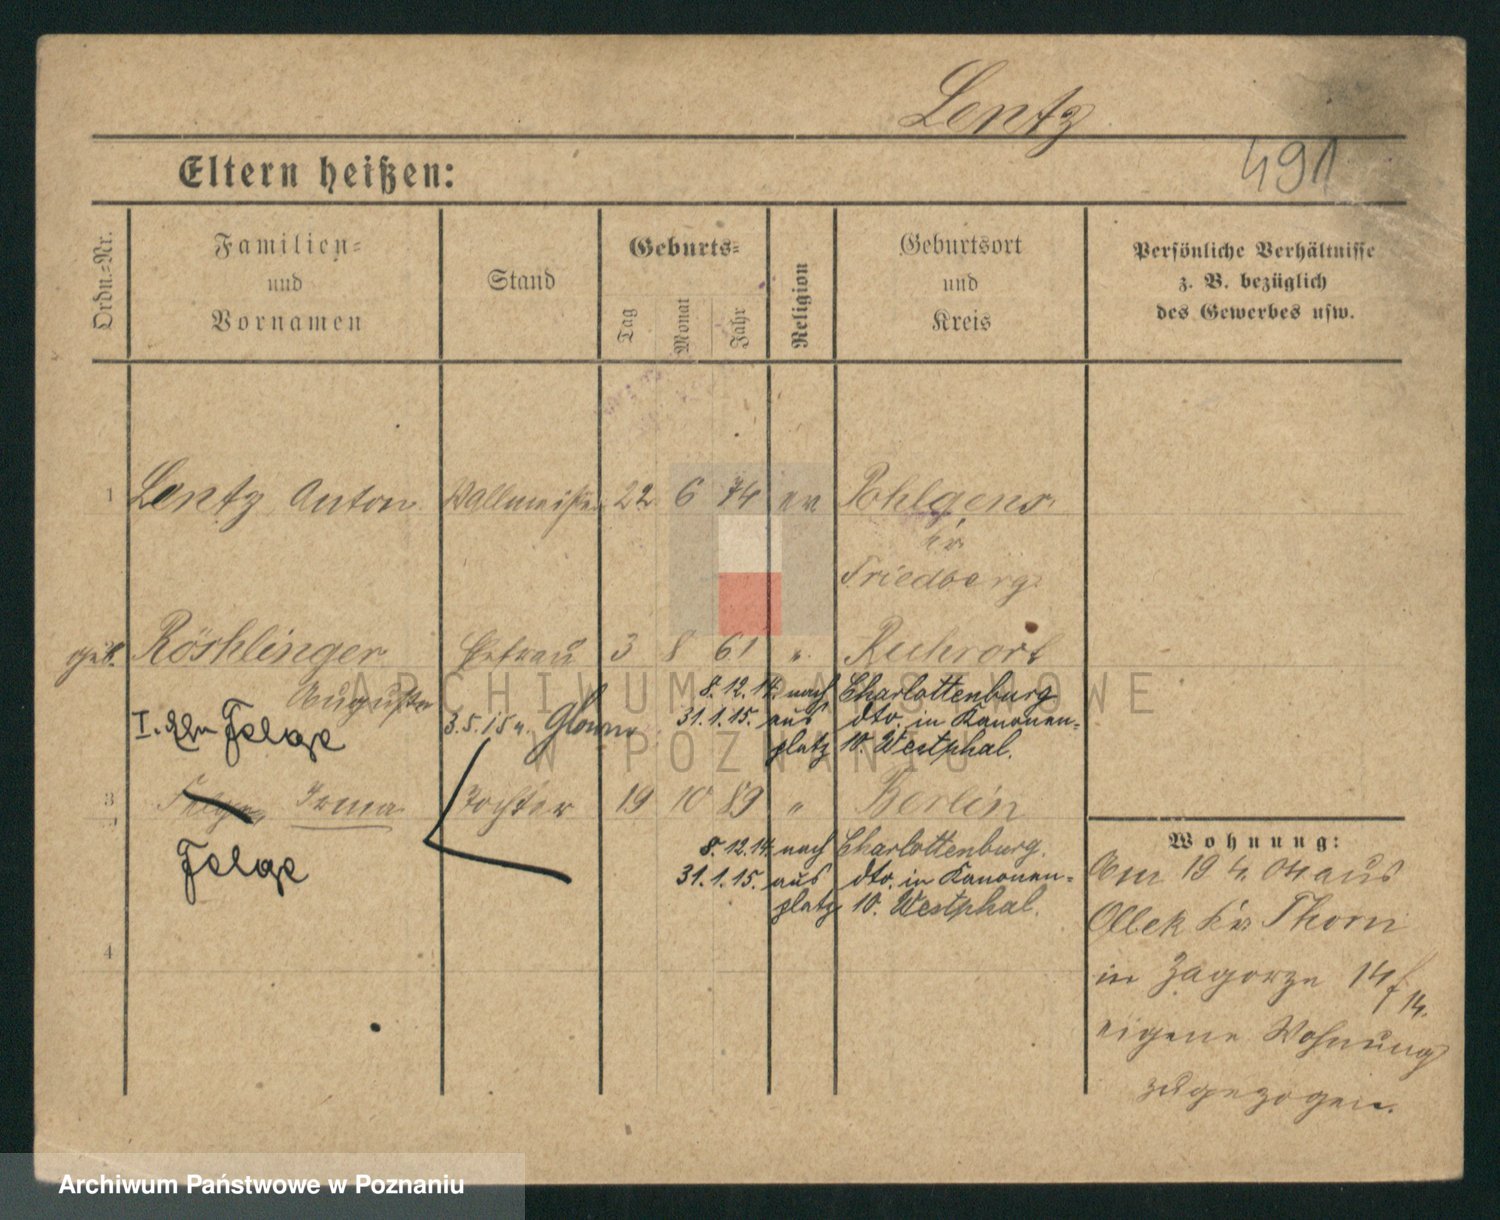 Lentz
491
Eltern heißen:
Ordn.-Nr.
Familien-
und
Vornamen
Stand
Geburts-
Tag
Monat
Jahr
Religion
Geburtsort
und
Kreis
Persönliche Verhältnisse
z. B. bezüglich
des Gewerbes usw.
1 Lentz Anton Wallmeister 22 6 74 ev Pohlgens
Kr
Friedberg
geb. Röshlinger Ehefrau 3 8 61 " Ruhrort
Auguste
8.12.14. nach Charlottenburg
I. Ehe Felge 3.5.15 n. Glowno 31.1.15. aus dto. in Kanonen-
platz 10. Westphal.
3 Irma Tochter 19 10 89 " Berlin
8.12.14. nach Charlottenburg.
Felge 31.1.15. aus dto. in Kanonen-
platz 10. Westphal.
4
Wohnung:
Am 19 4. 04 aus
Ollek Kr Thorn
in Zagorze 14
14.
eigene Wohnung
zugezogen.
ARCHIWUM PAŃSTWOWE
W POZNANIU
Archiwum Państwowe w Poznaniu